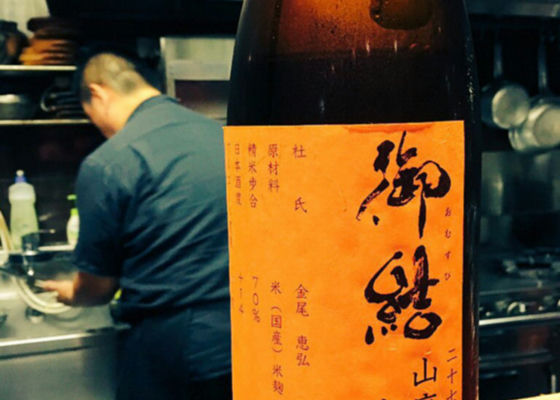 御結
おむすび
二十七
山
杜氏 金尾 恵弘
原材料 米（国産）米麹
精米歩合 70%
日本酒度 +14